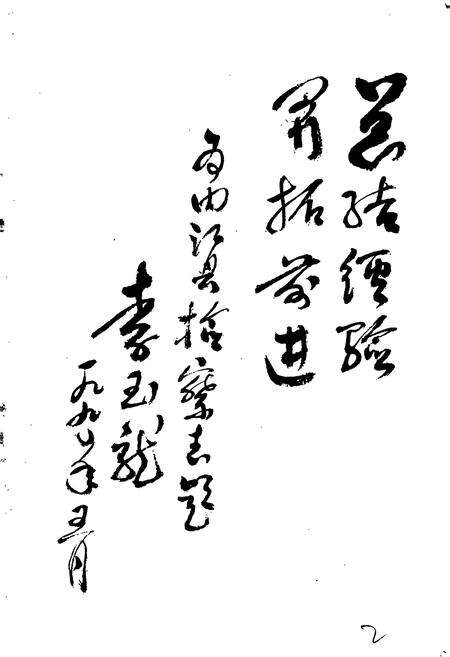 总结经验
开拓前进
为内江县检察志题
李玉龙
一九九〇年五月
2